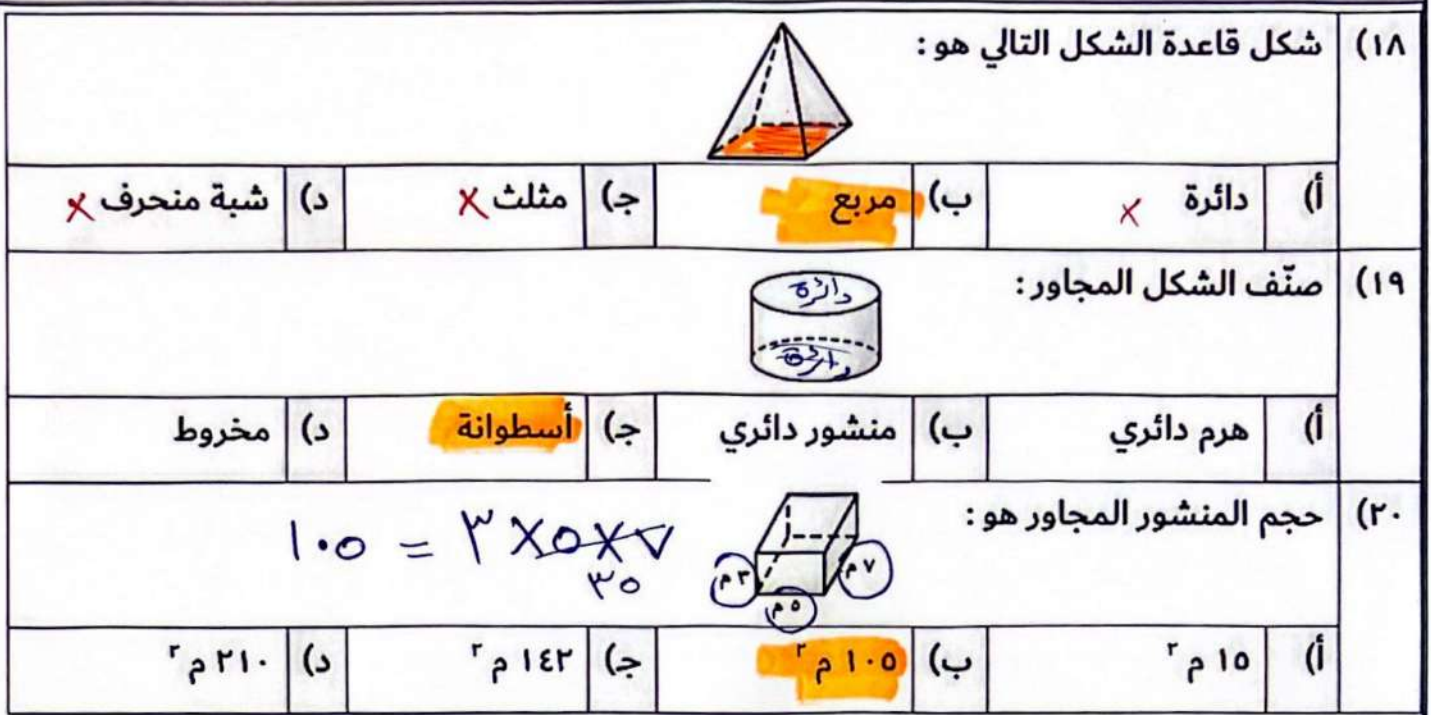 ١٨) شكل قاعدة الشكل التالي هو :
أ) دائرة × ب) مربع ج) مثلث × د) شبة منحرف ×
١٩) صنّف الشكل المجاور :
دائرة
دائرة
أ) هرم دائري ب) منشور دائري ج) أسطوانة د) مخروط
٢٠) حجم المنشور المجاور هو :
٧×٥×٣ = ١٠٥
٣٥
٣ م ٧ م
٥ م
أ) ١٥ م ٢ ب) ١٠٥ م ٢ ج) ١٤٢ م ٢ د) ٢١٠ م ٢